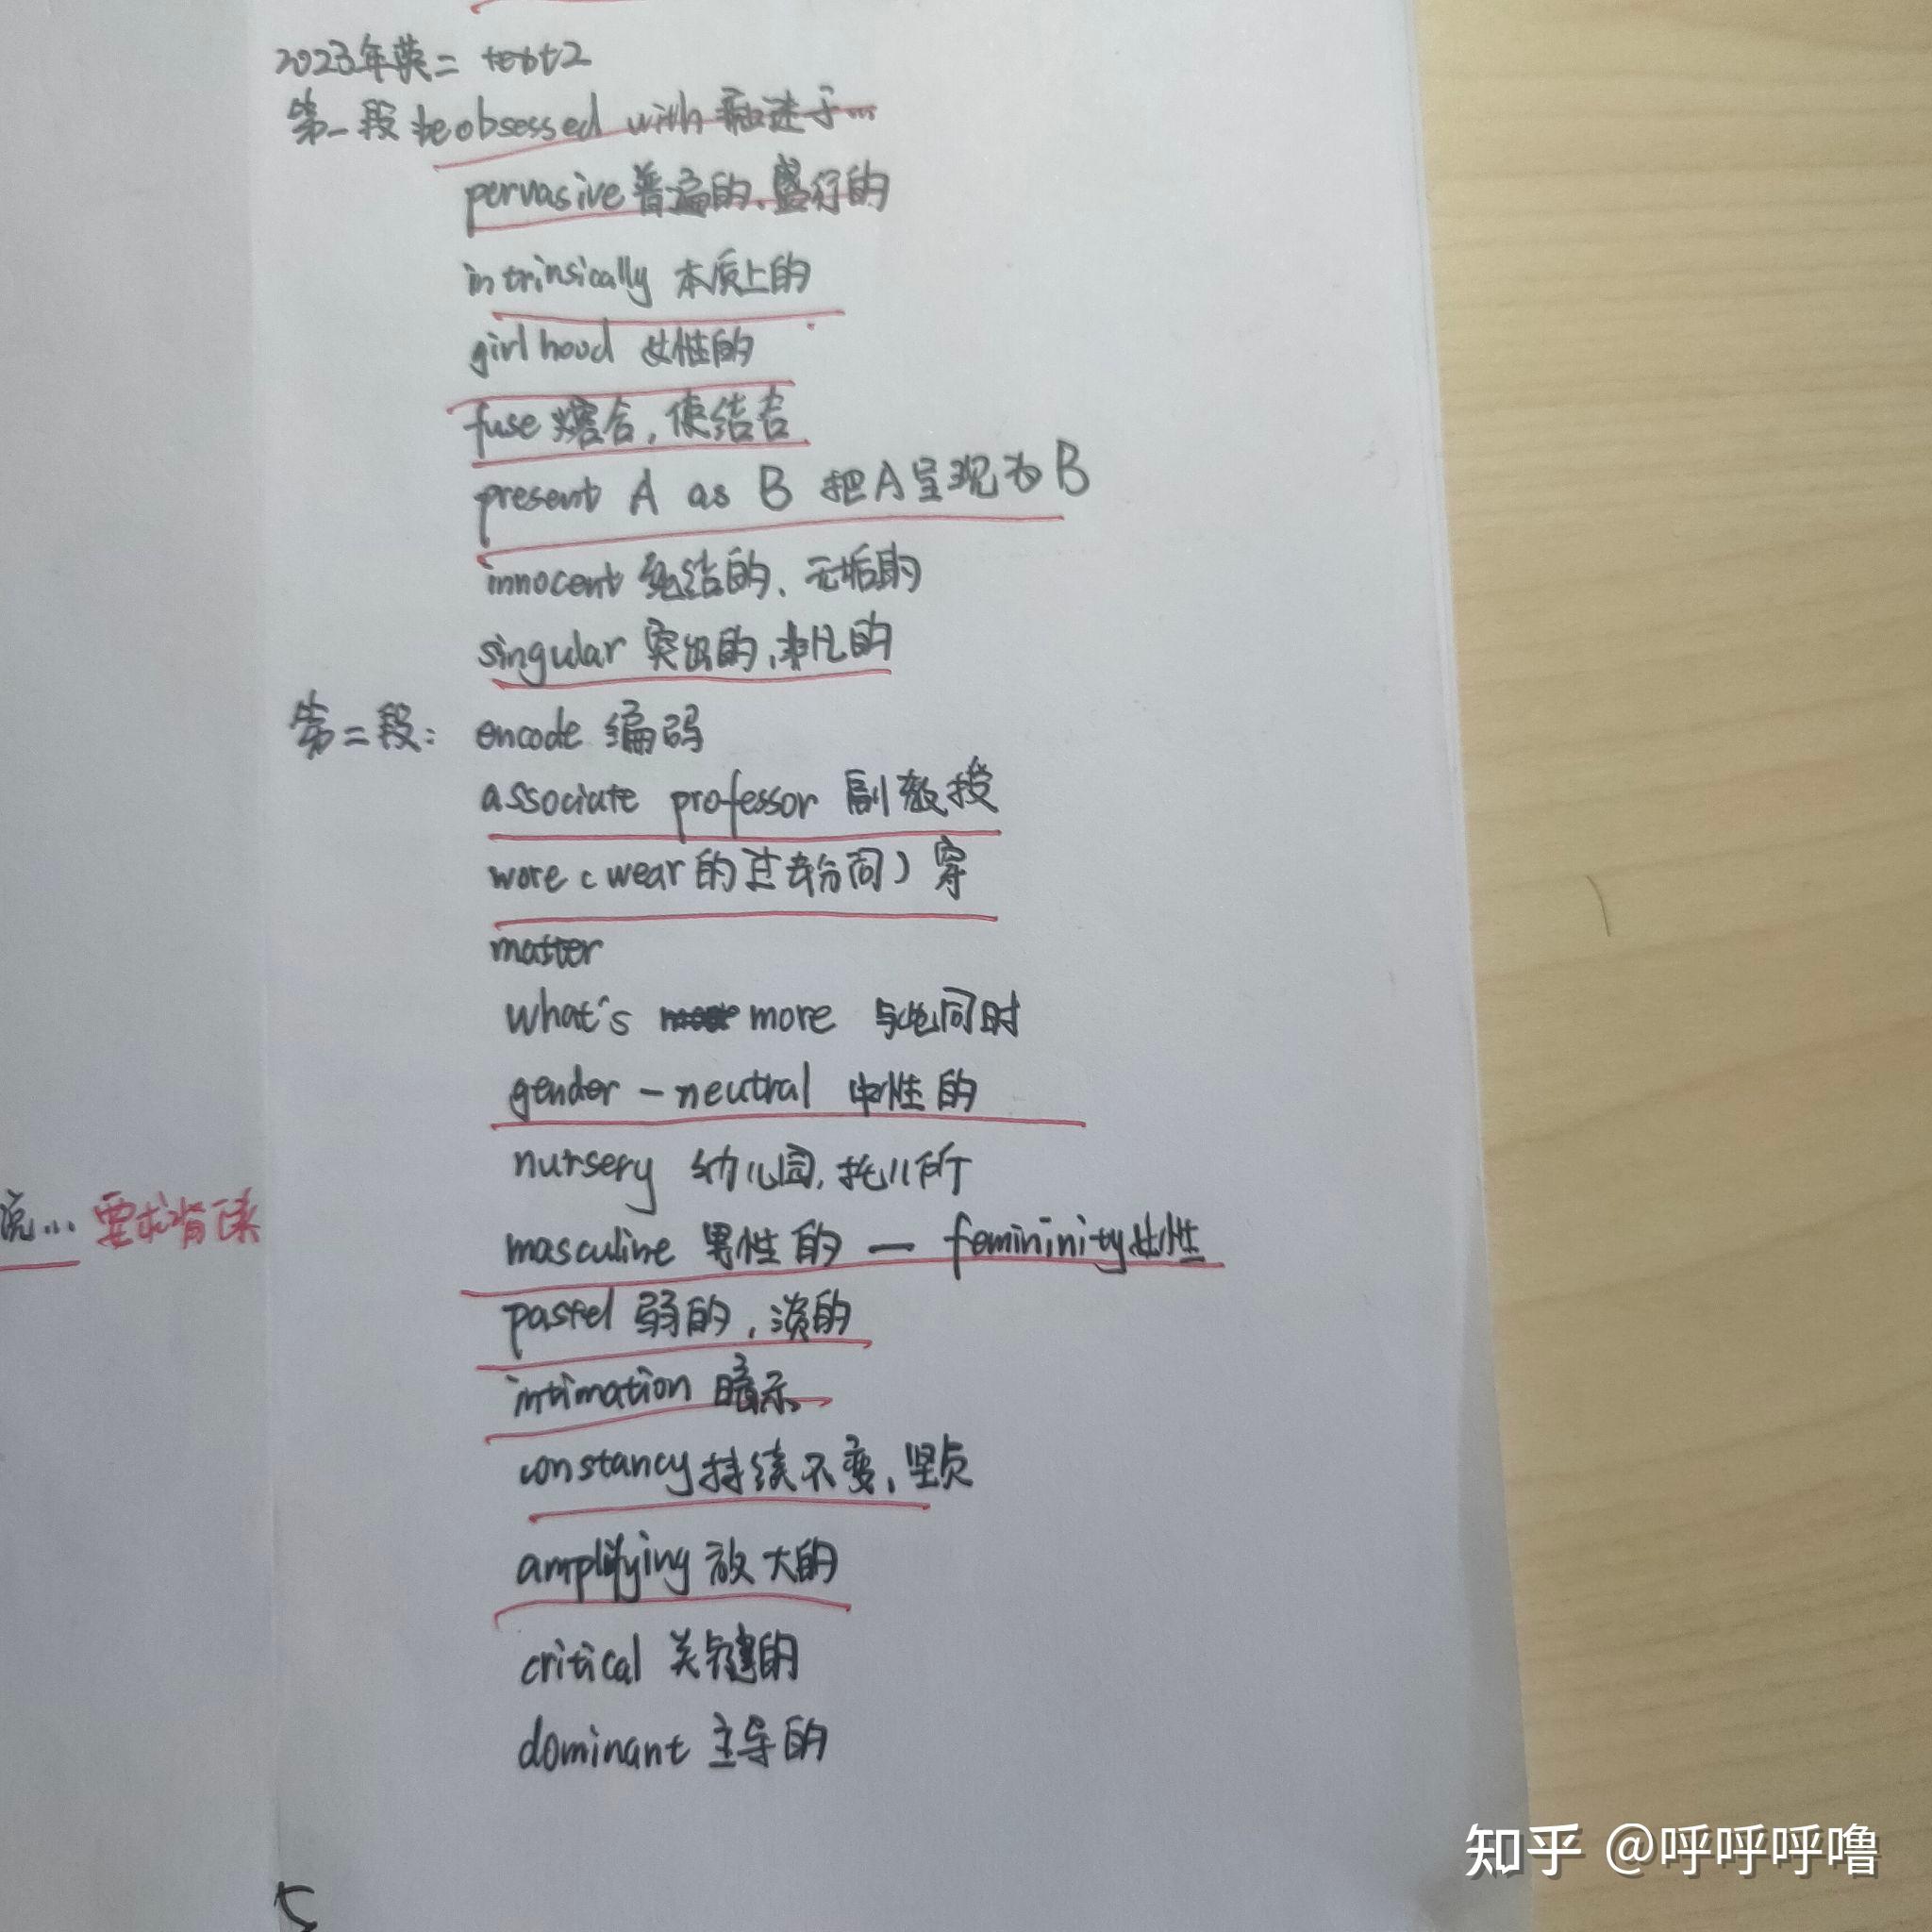 2023年英二 text2
第一段 be obsessed with 痴迷于...
pervasive 普遍的、盛行的
intrinsically 本质上的
girlhood 女性的
fuse 熔合，使结合
present A as B 把A呈现为B
innocent 纯洁的、无垢的
singular 突出的，非凡的
第二段： encode 编码
associate professor 副教授
wore (wear的过去分词) 穿
matter
what's more 与此同时
gender-neutral 中性的
nursery 幼儿园，托儿所
说... 要求背下来
masculine 男性的 — femininity 女性
pastel 弱的，淡的
intimation 暗示
constancy 持续不变，坚贞
amplifying 放大的
critical 关键的
dominant 主导的
知乎 @呼呼呼噜